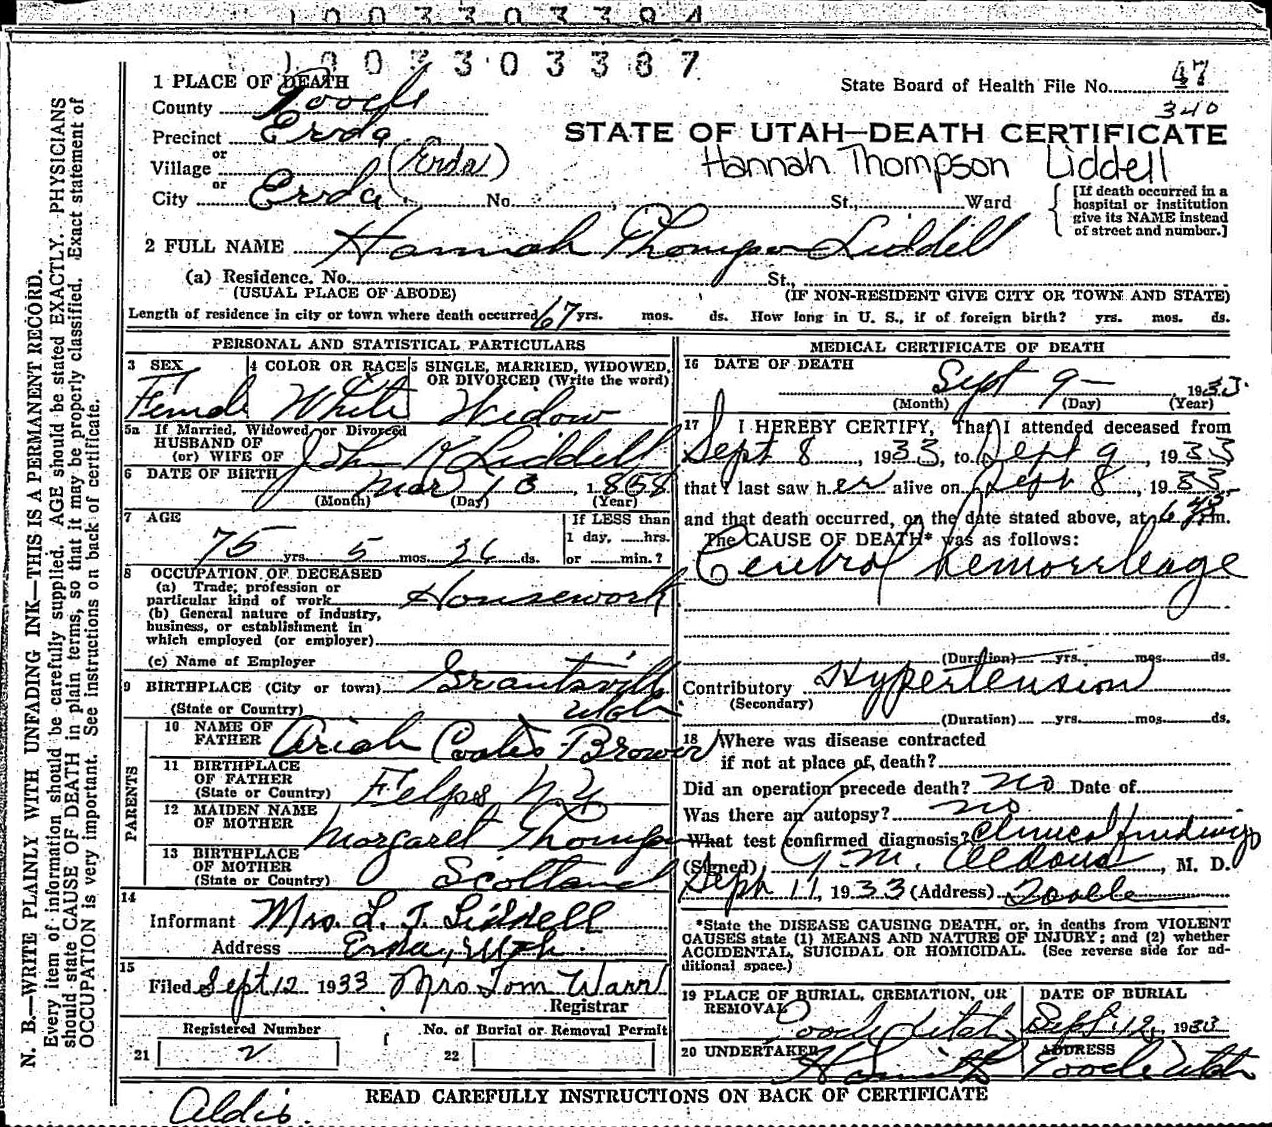 1003303394
1003303387
1 PLACE OF DEATH
County Tooele
Precinct Erda
or
Village (Erda)
or
City Erda No. St., Ward
State Board of Health File No. 47
340
STATE OF UTAH—DEATH CERTIFICATE
Hannah Thompson Liddell
[If death occurred in a
hospital or institution
give its NAME instead
of street and number.]
2 FULL NAME Hannah Thompson Liddell
(a) Residence. No. St.,
(USUAL PLACE OF ABODE) (IF NON-RESIDENT GIVE CITY OR TOWN AND STATE)
Length of residence in city or town where death occurred 67 yrs. mos. ds. How long in U. S., if of foreign birth? yrs. mos. ds.
PERSONAL AND STATISTICAL PARTICULARS
3 SEX 4 COLOR OR RACE 5 SINGLE, MARRIED, WIDOWED,
OR DIVORCED (Write the word)
Female White Widow
5a If Married, Widowed or Divorced
HUSBAND OF
(or) WIFE OF John Liddell
6 DATE OF BIRTH Mar 13, 1858
(Month) (Day) (Year)
7 AGE If LESS than
1 day, hrs.
75 yrs. 5 mos. 26 ds. or min.?
8 OCCUPATION OF DECEASED
(a) Trade; profession or
particular kind of work Housework
(b) General nature of industry,
business, or establishment in
which employed (or employer)
(c) Name of Employer
9 BIRTHPLACE (City or town) Grantsville
(State or Country) Utah
10 NAME OF
FATHER Ariah Coates Brower
11 BIRTHPLACE
OF FATHER
(State or Country) Felps N.Y
12 MAIDEN NAME
OF MOTHER Margaret Thompson
13 BIRTHPLACE
OF MOTHER
(State or Country) Scotland
PARENTS
14
Informant Mrs. L. T. Liddell
Address Erda, Utah
15
Filed Sept 12 1933 Mrs Tom Warr
Registrar
Registered Number No. of Burial or Removal Permit
21 2 22
MEDICAL CERTIFICATE OF DEATH
16 DATE OF DEATH
Sept 9 — 1933.
(Month) (Day) (Year)
17 I HEREBY CERTIFY, That I attended deceased from
Sept 8, 1933, to Sept 9, 1933
that I last saw her alive on Sept 8, 1933
and that death occurred, on the date stated above, at 6 45 m.
The CAUSE OF DEATH* was as follows:
Cerebral hemorrhage
(Duration) yrs. mos. ds.
Contributory Hypertension
(Secondary)
(Duration) yrs. mos. ds.
18 Where was disease contracted
if not at place of death?
Did an operation precede death? no Date of
Was there an autopsy? no
What test confirmed diagnosis? Clinical findings
(Signed) J M. Aldous, M. D.
Sept 11, 1933 (Address) Tooele
*State the DISEASE CAUSING DEATH, or, in deaths from VIOLENT
CAUSES state (1) MEANS AND NATURE OF INJURY; and (2) whether
ACCIDENTAL, SUICIDAL OR HOMICIDAL. (See reverse side for ad-
ditional space.)
19 PLACE OF BURIAL, CREMATION, OR DATE OF BURIAL
REMOVAL
Tooele Utah Sept. 12, 1933
20 UNDERTAKER ADDRESS
Tooele Utah
READ CAREFULLY INSTRUCTIONS ON BACK OF CERTIFICATE
N. B.—WRITE PLAINLY WITH UNFADING INK—THIS IS A PERMANENT RECORD.
Every item of information should be carefully supplied. AGE should be stated EXACTLY. PHYSICIANS
should state CAUSE OF DEATH in plain terms, so that it may be properly classified. Exact statement of
OCCUPATION is very important. See instructions on back of certificate.